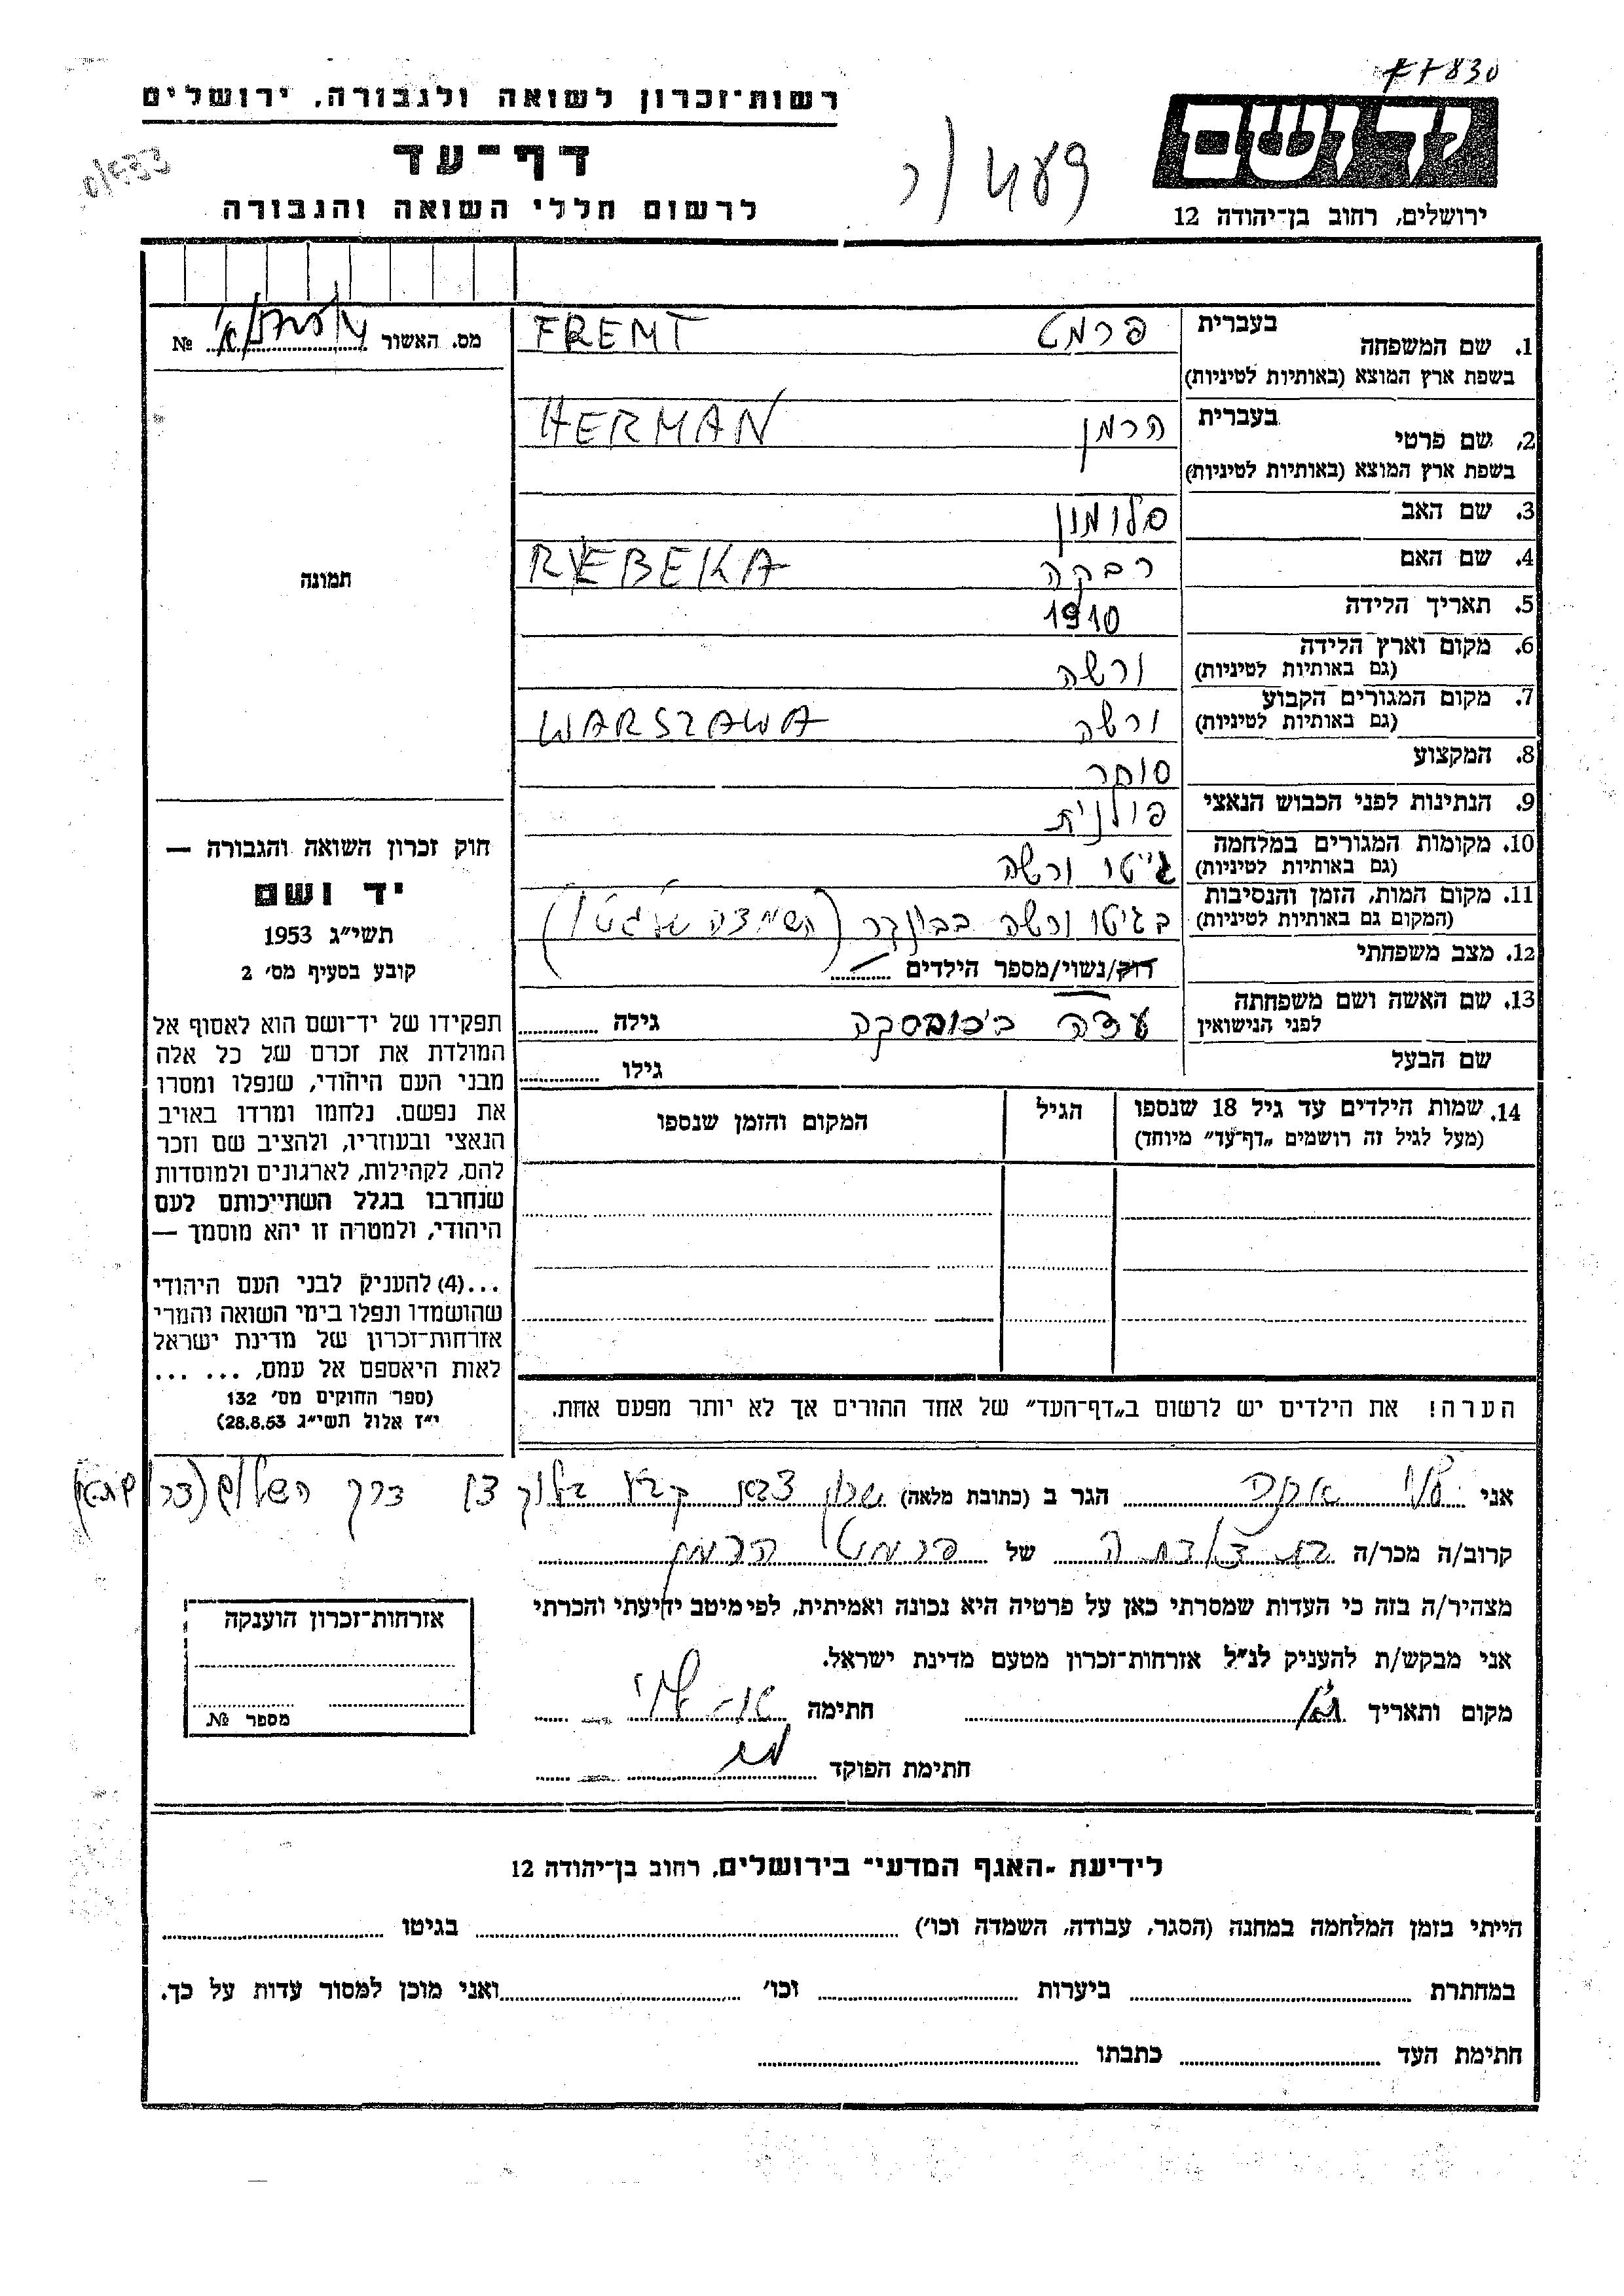 77830
רשות־זכרון לשואה ולגבורה, ירושלים
יד ושם
דף־עד
לרשום חללי השואה והגבורה
ירושלים, רחוב בן־יהודה 12
מס. האשור №
1. שם המשפחה בעברית פרמט FREMT
בשפת ארץ המוצא (באותיות לטיניות)
2. שם פרטי בעברית הרמן HERMAN
בשפת ארץ המוצא (באותיות לטיניות)
3. שם האב סלומון
4. שם האם רבקה REBEKA
5. תאריך הלידה 1910
6. מקום וארץ הלידה ורשה
(גם באותיות לטיניות)
7. מקום המגורים הקבוע ורשה WARSZAWA
(גם באותיות לטיניות)
8. המקצוע סוחר
9. הנתינות לפני הכבוש הנאצי פולנית
10. מקומות המגורים במלחמה גיטו ורשה
(גם באותיות לטיניות)
11. מקום המות, הזמן והנסיבות בגיטו ורשה בבונקר (השמדה של גטו)
(המקום גם באותיות לטיניות)
12. מצב משפחתי רוק/נשוי/מספר הילדים
13. שם האשה ושם משפחתה עדה גילה
לפני הנישואין
שם הבעל גילו
14. שמות הילדים עד גיל 18 שנספו הגיל המקום והזמן שנספו
(מעל לגיל זה רושמים „דף־עד" מיוחד)
הערה! את הילדים יש לרשום ב„דף־העד" של אחד ההורים אך לא יותר מפעם אחת.
תמונה
חוק זכרון השואה והגבורה —
יד ושם
תשי"ג 1953
קובע בסעיף מס׳ 2
תפקידו של יד־ושם הוא לאסוף אל
המולדת את זכרם של כל אלה
מבני העם היהודי, שנפלו ומסרו
את נפשם. נלחמו ומרדו באויב
הנאצי ובעוזריו, ולהציב שם וזכר
להם, לקהילות, לארגונים ולמוסדות
שנחרבו בגלל השתייכותם לעם
היהודי, ולמטרה זו יהא מוסמך —
...(4) להעניק לבני העם היהודי
שהושמדו ונפלו בימי השואה והמרי
אזרחות־זכרון של מדינת ישראל
לאות היאספם אל עמם, ... ...
(ספר החוקים מס׳ 132
י"ז אלול תשי"ג 28.8.53)
אני הגר ב (כתובת מלאה) שכון דרך השלום
קרוב/ה מכר/ה בת דודה של פרמט הרמן
מצהיר/ה בזה כי העדות שמסרתי כאן על פרטיה היא נכונה ואמיתית, לפי מיטב ידיעתי והכרתי
אני מבקש/ת להעניק לנ"ל אזרחות־זכרון מטעם מדינת ישראל.
מקום ותאריך חתימה
חתימת הפוקד
אזרחות־זכרון הוענקה
מספר №
לידיעת ־האגף המדעי־ בירושלים, רחוב בן־יהודה 12
הייתי בזמן המלחמה במחנה (הסגר, עבודה, השמדה וכו׳) בגיטו
במחתרת ביערות וכו׳ ואני מוכן למסור עדות על כך.
חתימת העד כתבתו